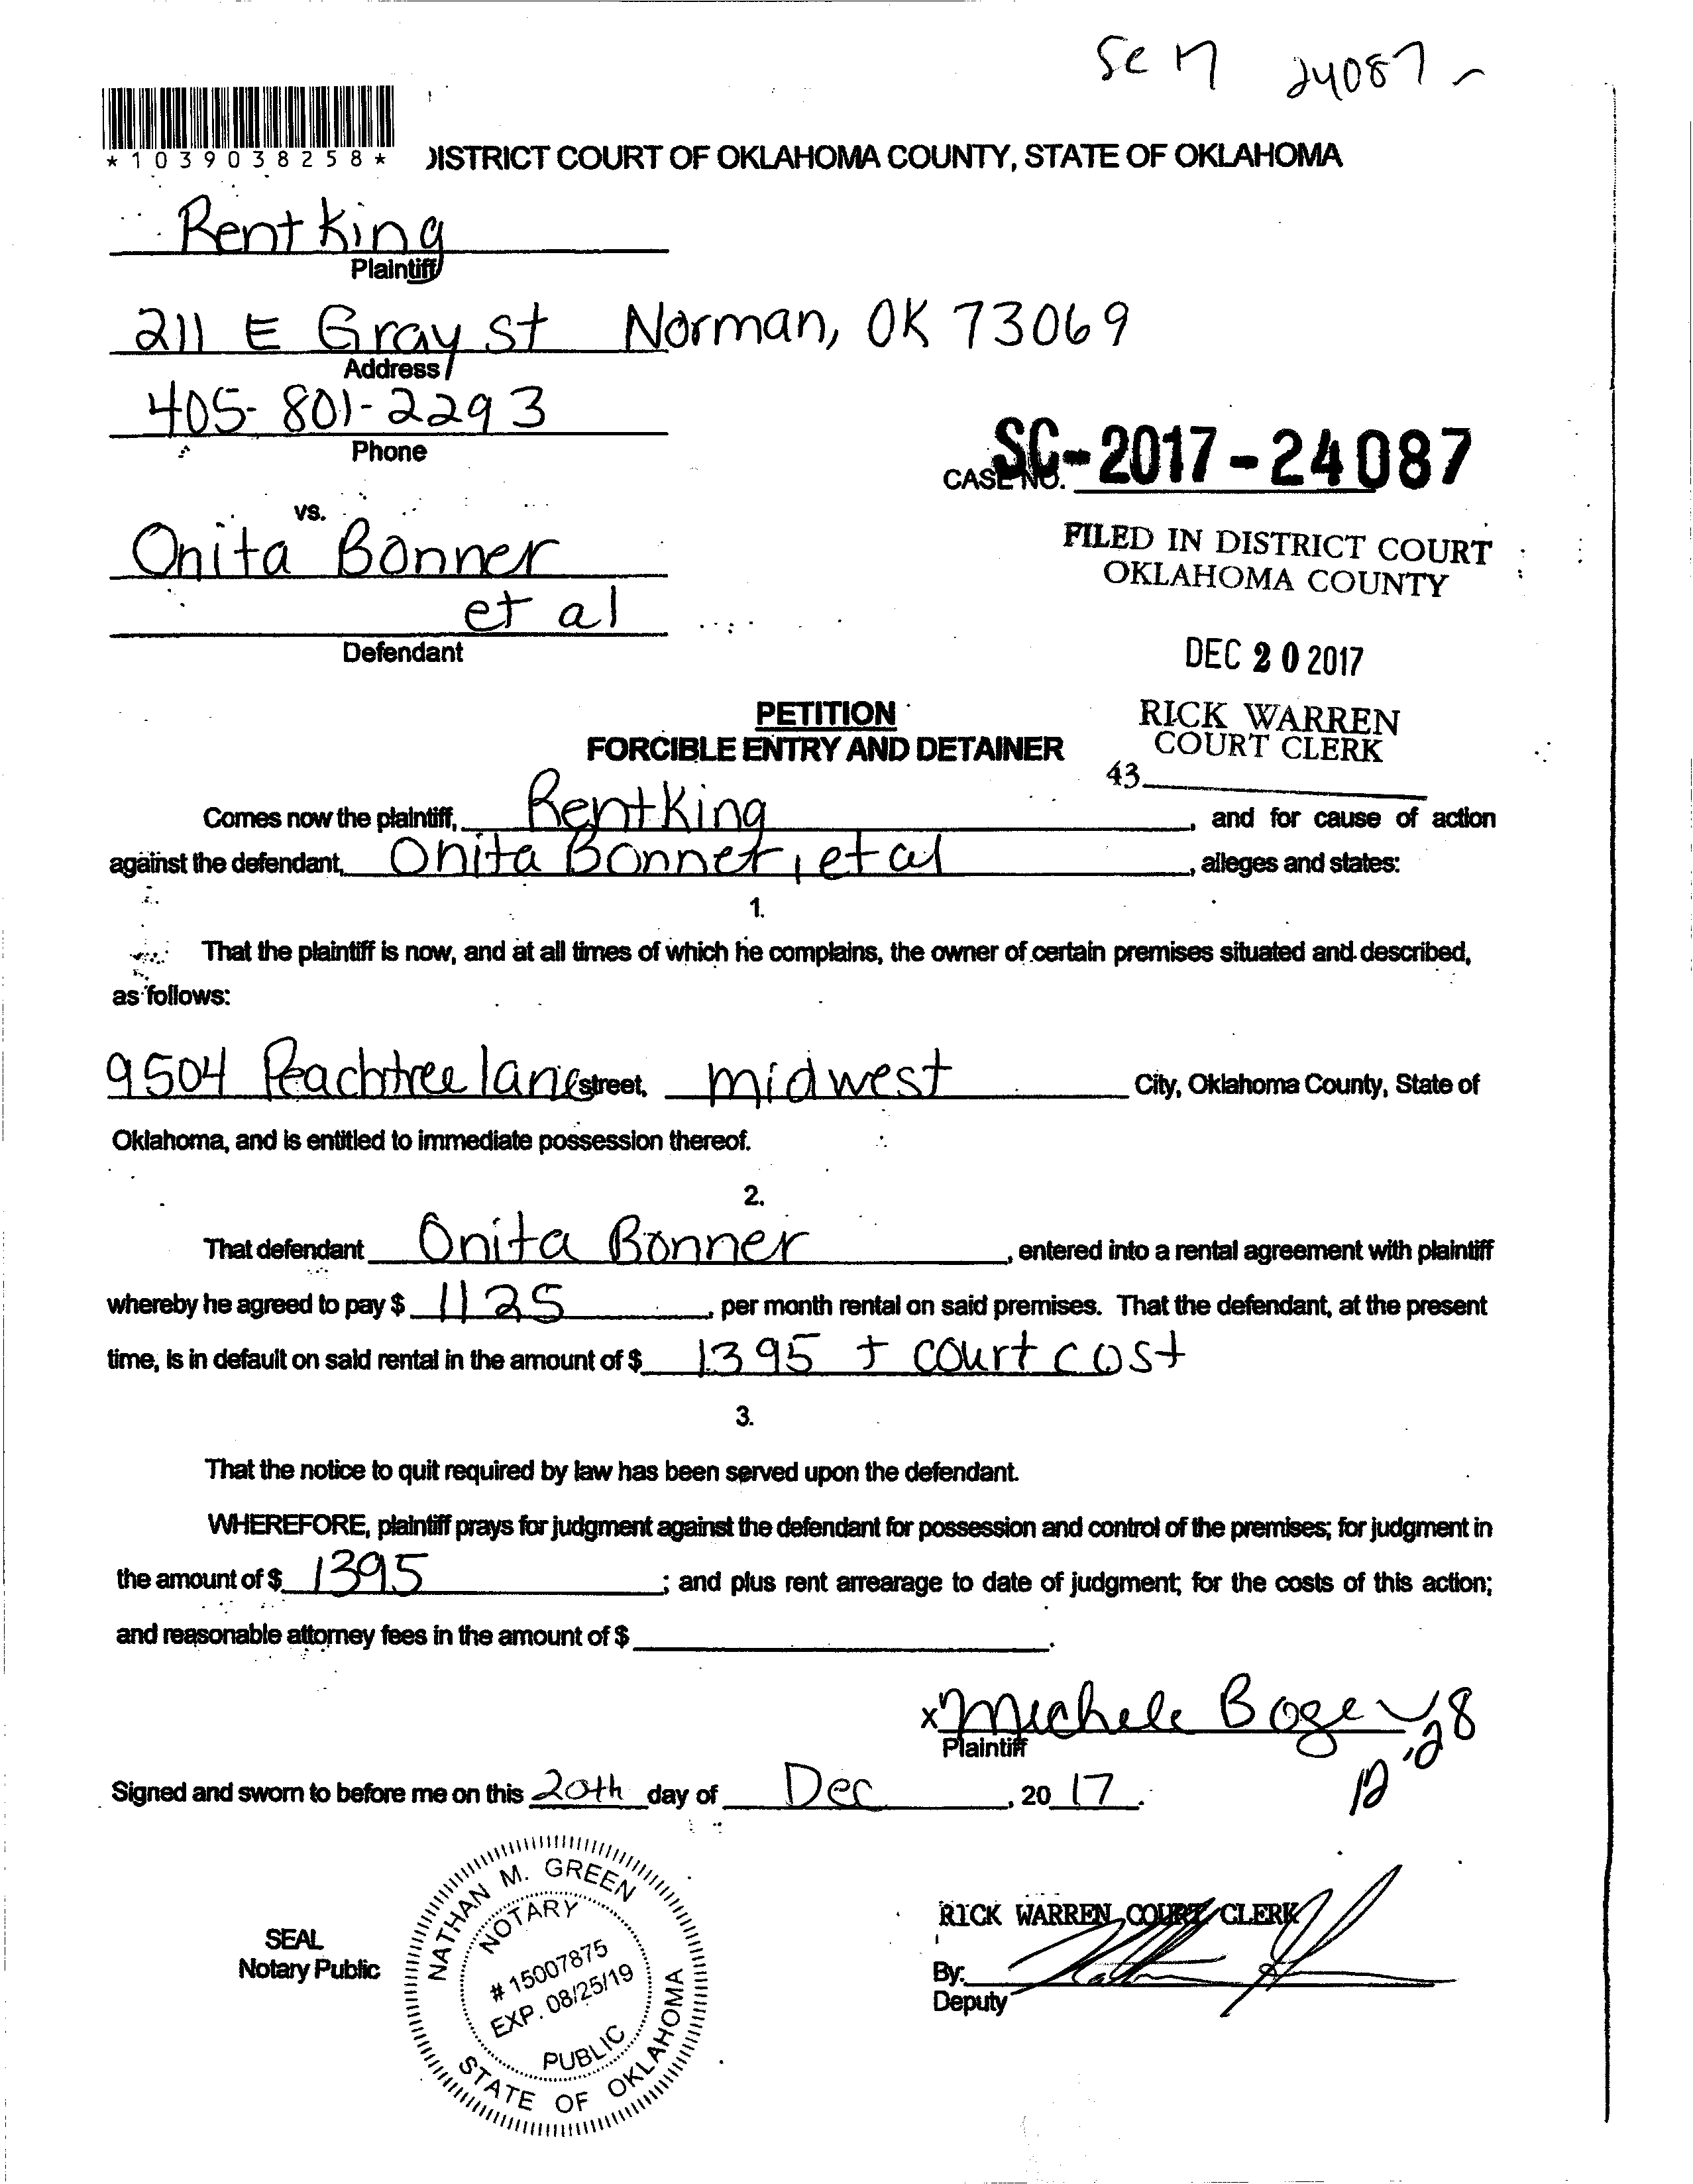 SC 17 24087
*1039038258*
DISTRICT COURT OF OKLAHOMA COUNTY, STATE OF OKLAHOMA
Rent King
Plaintiff
211 E Gray St Norman, OK 73069
Address
405-801-2293
Phone
SC-2017-24087
CASE NO.
vs.
FILED IN DISTRICT COURT
OKLAHOMA COUNTY
Onita Bonner
et al
Defendant
DEC 20 2017
PETITION
FORCIBLE ENTRY AND DETAINER
RICK WARREN
COURT CLERK
43
Comes now the plaintiff, RentKing, and for cause of action
against the defendant, Onita Bonner, et al, alleges and states:
1.
That the plaintiff is now, and at all times of which he complains, the owner of certain premises situated and described,
as follows:
9504 Peachtree lane street, midwest City, Oklahoma County, State of
Oklahoma, and is entitled to immediate possession thereof.
2.
That defendant Onita Bonner, entered into a rental agreement with plaintiff
whereby he agreed to pay $ 1125, per month rental on said premises. That the defendant, at the present
time, is in default on said rental in the amount of $ 1395 + court cost
3.
That the notice to quit required by law has been served upon the defendant.
WHEREFORE, plaintiff prays for judgment against the defendant for possession and control of the premises; for judgment in
the amount of $ 1395; and plus rent arrearage to date of judgment; for the costs of this action;
and reasonable attorney fees in the amount of $.
x Michele
Plaintiff
Signed and sworn to before me on this 20th day of Dec, 20 17.
SEAL
Notary Public
NATHAN M. GREEN
NOTARY
# 15007875
EXP. 08/25/19
PUBLIC
STATE OF OKLAHOMA
RICK WARREN, COURT CLERK
By:
Deputy